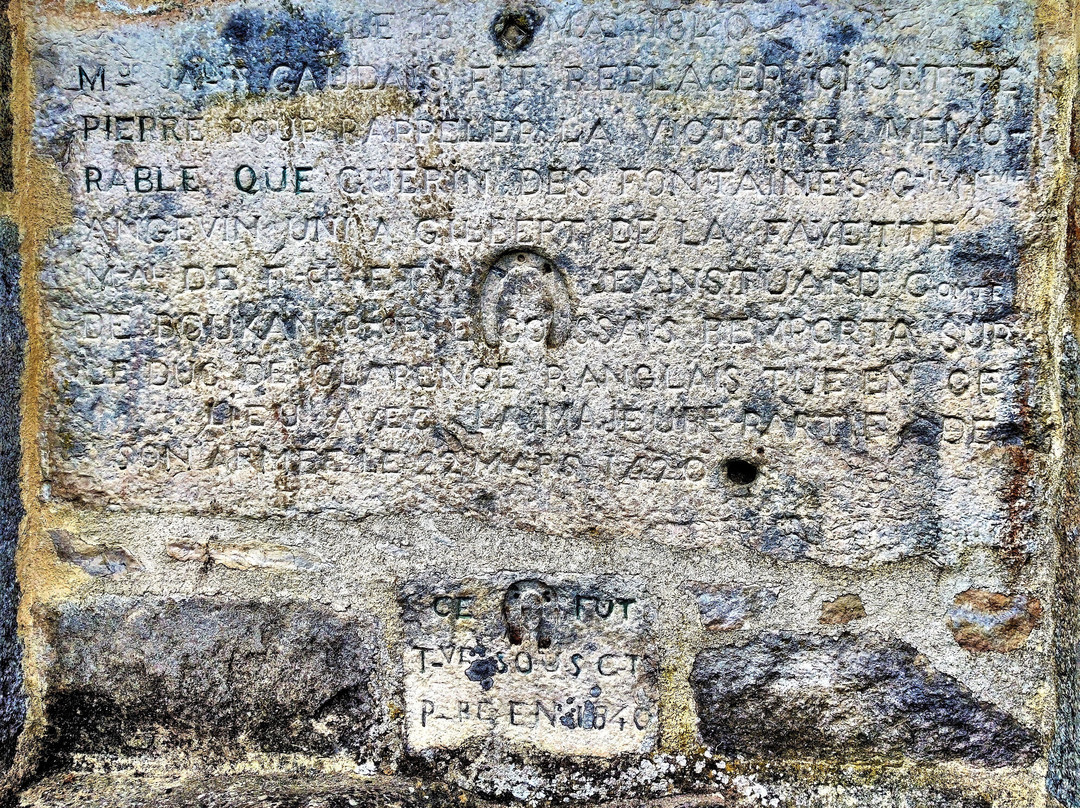 LE 13 MAI 1840
Mr GAUDAIS FIT REPLACER ICI CETTE
PIERRE POUR RAPPELER LA VICTOIRE MÉMO-
RABLE QUE GUÉRIN DES FONTAINES
ANGEVIN UNI A GILBERT DE LA FAYETTE
DE ET A JEAN STUARD
DE BOUKAN ECOSSAIS REMPORTA SUR
LE DUC DE CLARENCE P. ANGLAIS TUÉ EN CE
LIEU AVEC LA MAJEURE PARTIE DE
SON ARMEE LE 22 MARS 1420
CE FUT
T-VÉ SOUS C-T
P-RE EN 1840